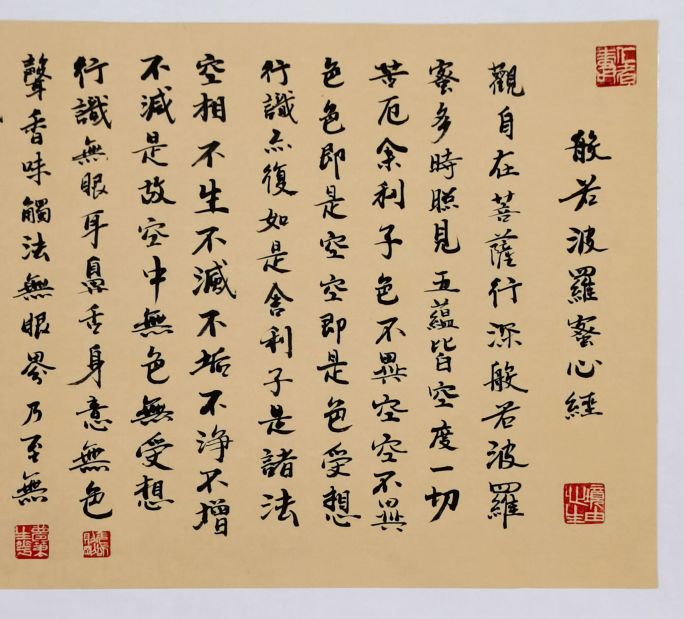 仁者壽
般若波羅蜜心經
觀自在菩薩行深般若波羅
蜜多時照見五蘊皆空度一切
苦厄舍利子色不異空空不異
色色即是空空即是色受想
行識亦復如是舍利子是諸法
空相不生不滅不垢不浄不增
不減是故空中無色無受想
行識無眼耳鼻舌身意無色
聲香味觸法無眼界乃至無